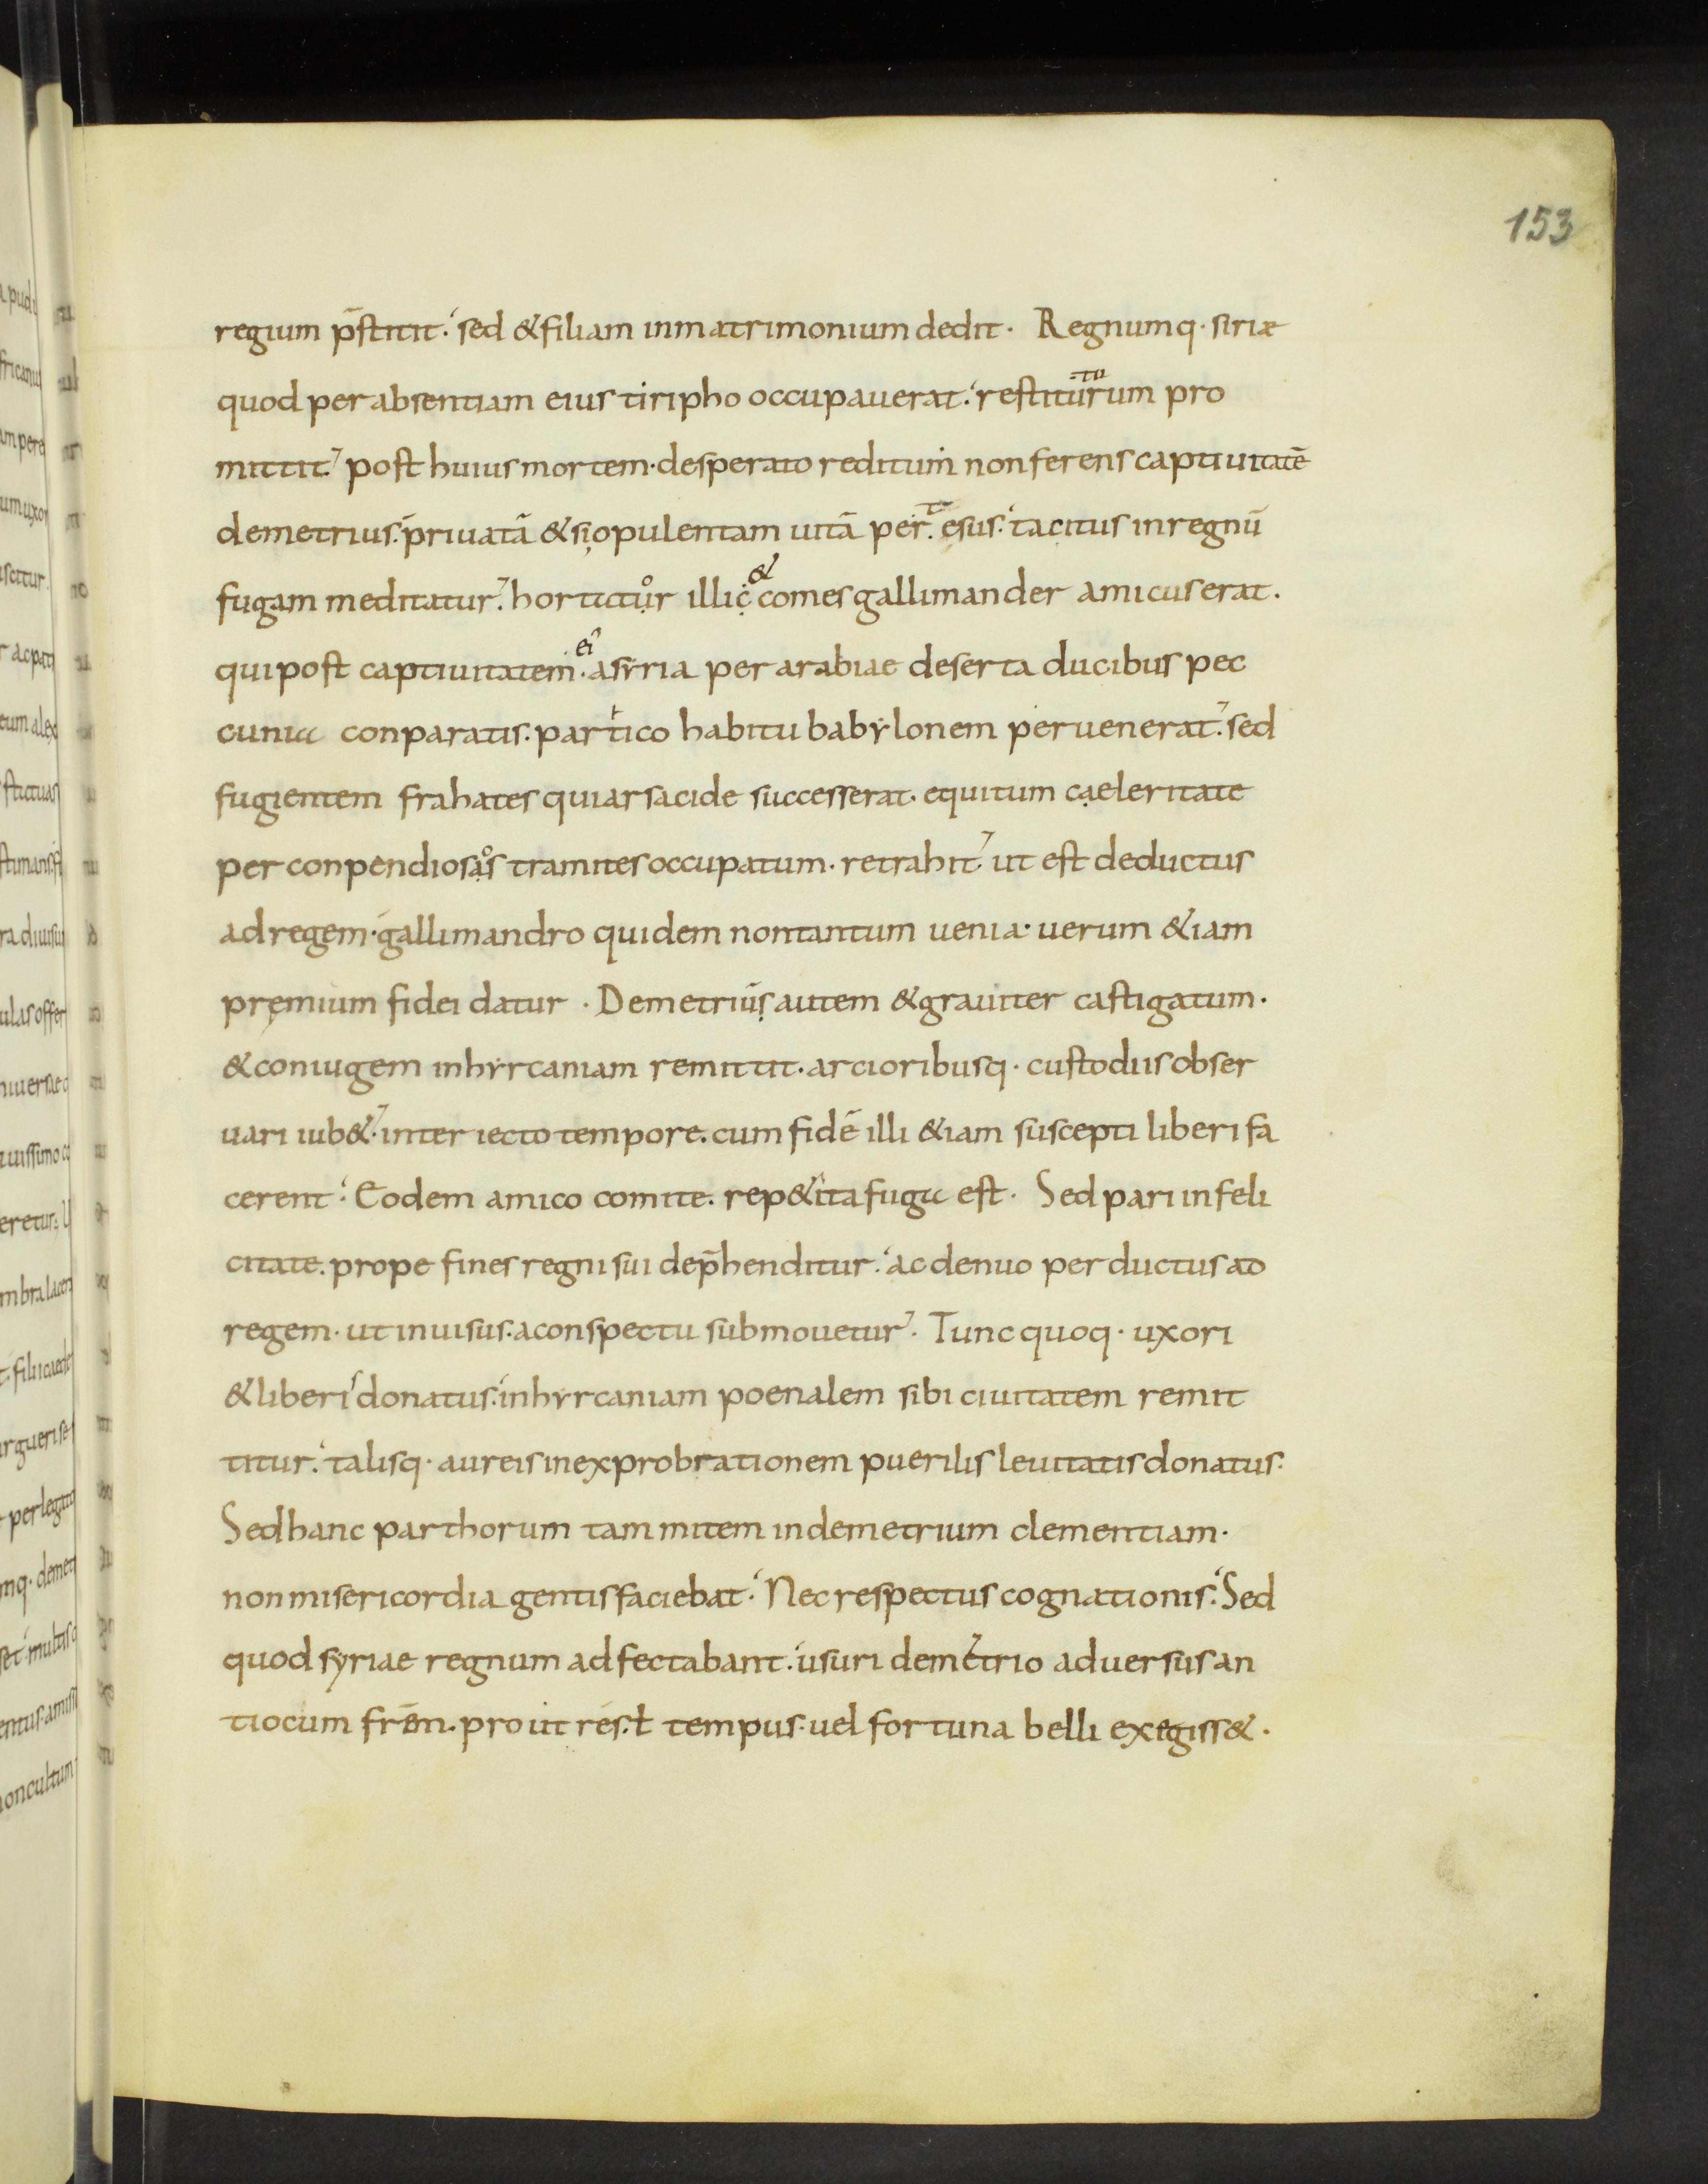 153
regium p̄stitit. sed & filiam in matrimonium dedit. Regnumq· siriæ
quod per absentiam eius tiripho occupauerat. restiturum pro
tu
mittit. post huius mortem. desperato reditum non ferens captiuitatē
demetrius. priuatā & si opulentam uitā per. esus. tacitus in regnū
fugam meditatur. hortator illic & comes gallimander amicus erat.
qui post captiuitatem ei a syria per arabiae deserta ducibus pec
cunia conparatis. partico habitu babylonem peruenerat. sed
fugientem frahates qui arsacide successerat. equitum caeleritate
per conpendiosos tramites occupatum. retrahit ut est deductus
ad regem. gallimandro quidem non tantum uenia. uerum &iam
pręmium fidei datur. Demetrius autem & grauiter castigatum.
& coniugem in hyrcaniam remittit. arcioribusq· custodiis obser
uari iub&. inter iecto tempore. cum fidē illi &iam suscepti liberi fa
cerent. Eodem amico comite. rep&ita fuga est. Sed pari infeli
citate. prope fines regni sui dep̄henditur. ac denuo perductus ad
regem. ut inuisus. a conspectu submouetur. Tunc quoq· uxori
& liberis donatus. in hyrcaniam poenalem sibi ciuitatem remit
titur. talisq· aureis in exprobrationem puerilis leuitatis donatus.
Sed hanc parthorum tam mitem in demetrium clementiam.
non misericordia gentis faciebat. Nec respectus cognationis. Sed
quod syriae regnum adfectabant. usuri demetrio aduersus an
tiocum frēm. prout res. ł tempus. uel fortuna belli exegiss&.